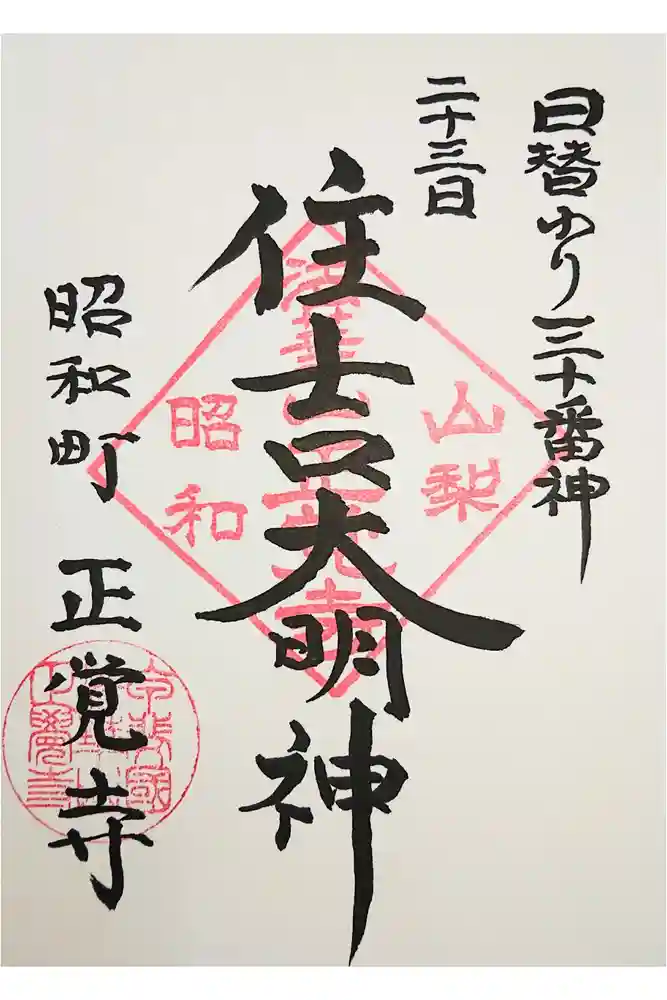 日替わり三十番神
二十三日
住吉大明神
昭和町 正覚寺
山梨
昭和